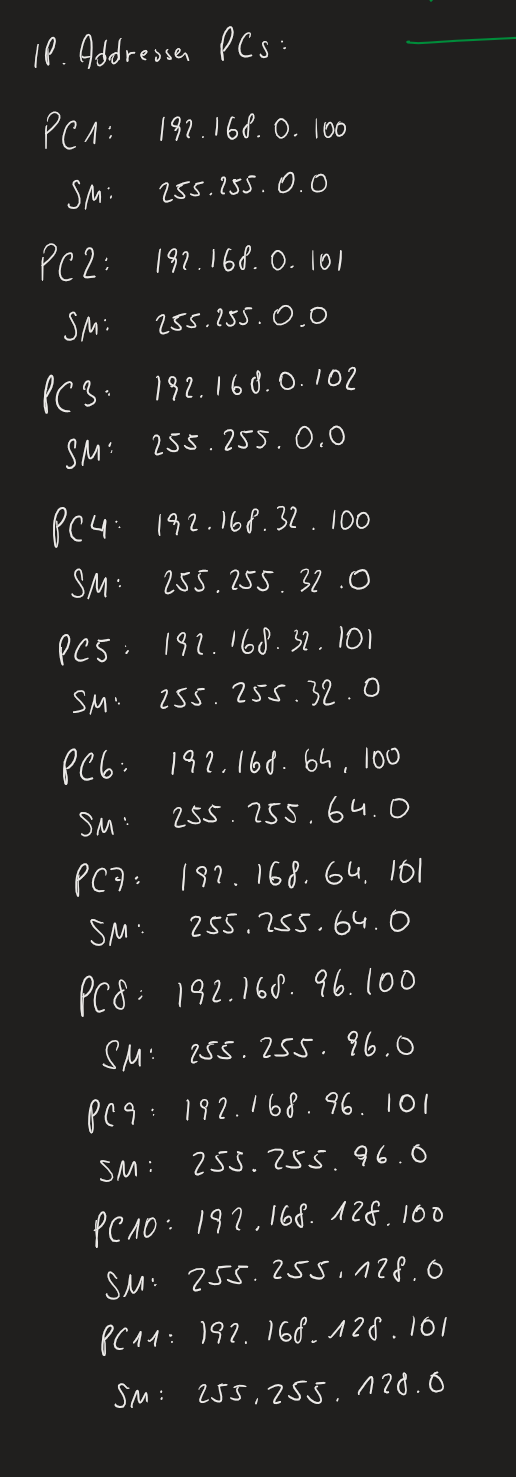 IP. Addressen PCs:
PC1: 192.168.0.100
SM: 255.255.0.0
PC2: 192.168.0.101
SM: 255.255.0.0
PC3: 192.168.0.102
SM: 255.255.0.0
PC4: 192.168.32.100
SM: 255.255.32.0
PC5: 192.168.32.101
SM: 255.255.32.0
PC6: 192.168.64.100
SM: 255.255.64.0
PC7: 192.168.64.101
SM: 255.255.64.0
PC8: 192.168.96.100
SM: 255.255.96.0
PC9: 192.168.96.101
SM: 255.255.96.0
PC10: 192.168.128.100
SM: 255.255.128.0
PC11: 192.168.128.101
SM: 255.255.128.0